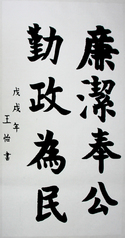 廉潔奉公
勤政為民
戊戌年
王怡書